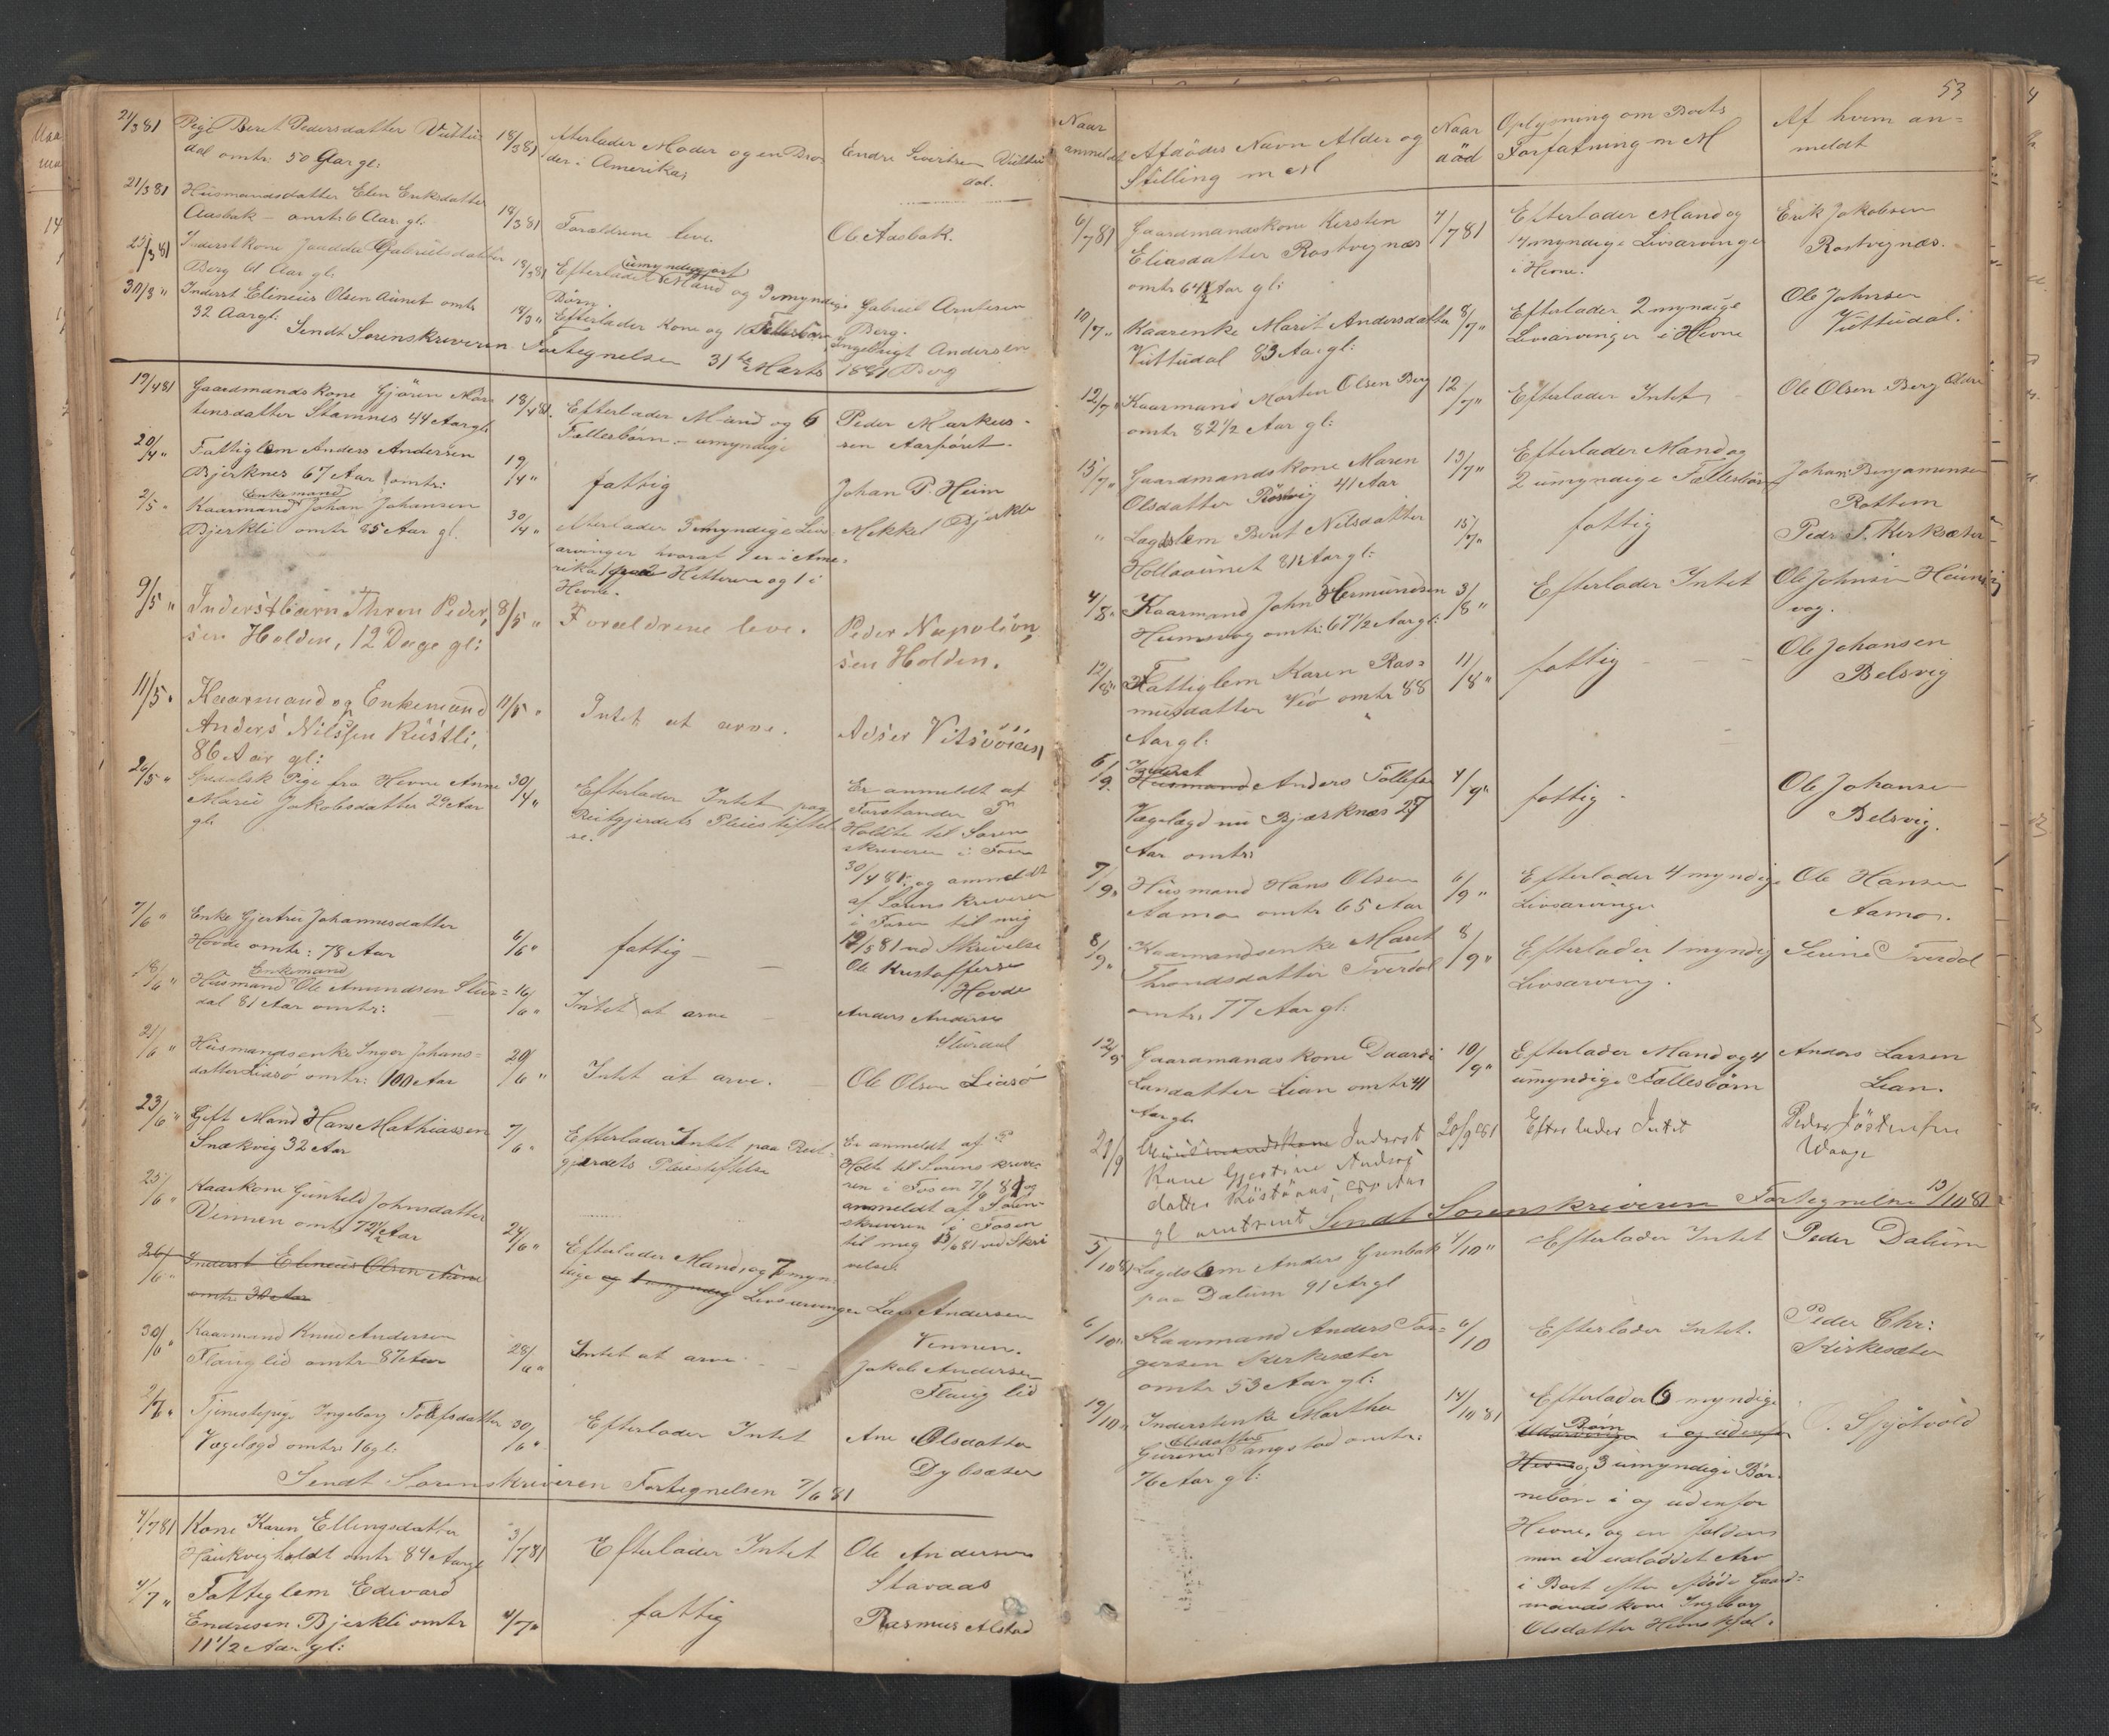 21/3 81 Pige Beret Pedersdatter Vuttu-
dal omtr: 50 Aar gl:
18/3 81 Efterlader Moder og en Bro
der i Amerika;
Endre Sivertsen Vuttu
dal.
21/3 81 Husmandsdatter Elen Eriksdatter
Aasbak - omtr: 6 Aar gl:
18/3 81 Forældrene leve.
Ole Aasbak.
25/3 81 Inderstkone Gabrielsdatter
Berg 61 Aar gl:
18/3 81 Efterlader Mand og 3 myndige
Børn.
Gabriel Arntsen
Berg.
30/3 " Inderst Elineus Olsen Aunet omtr
32 Aar gl:
18/3 " Efterlader Kone og 1 Fællesbarn
Ingebrigt Andersen
Berg
Sendt Sorenskriveren Fortegnelsen 31te Marts 1881
19/4 81 Gaardmandskone Gjøren Mor
tensdatter Stamnes 44 Aar gl:
18/4 81. Efterlader Mand og 6
Fællesbørn - umyndige
Peder Markus-
sen Aarhöret.
20/4 " Fattiglem Anders Andersen
Bjerknes 67 Aar omtr:
19/4 "
fattig
Johan P. Heim
2/5 " Enkemand
Kaarmand Johan Johansen
Bjerkli omtr 85 Aar gl.
30/4 " Efterlader 3 myndige Livs
arvinger hvoraf 1 er i Ame
rika 1 Hitteren og 1 i
Hevne.
Mekkel Bjerkli
9/5 " Inderstbarn Thron Peder,
sen Holden, 12 Dage gl:
8/5 " Forældrene leve.
Peder Napolion,
sen Holden.
11/5 " Kaarmand og Enkemand
Anders Nilssen Rustli,
86 Aar gl:
11/5 " Intet at arve.
26/5 " Spedalsk Pige fra Hevne Anne
Marie Jakobsdatter 29 Aar
gl.
30/4 " Efterlader Intet paa
Reitgjerdets Pleiestiftel
se.
Er anmeldt af
Forstander
Holdte til Soren
skriveren i Fosen
30/4 81. og anmeldt
af Sorenskriveren
i Fosen til mig
19/5 81 ved Skrivelse
7/6 " Enke Gjertru Johannesdatter
Hovde omtr: 78 Aar
6/6 "
fattig -
Ole Kristoffersen
Hovde
18/6 " Enkemand
Husmand Ole Amundsen Stur-
dal 81 Aar omtr:
16/6 " Intet at arve
Anders Andersen
Sturdal
21/6 " Husmandsenke Inger Johans-
datter Liasö omtr: 100 Aar
20/6 " Intet at arve.
Ole Olsen Liasö
23/6 " Gift Mand Hans Mathiassen
Snækvig 32 Aar
7/6 " Efterlader Intet paa Reit-
gjærdets Pleiestiftelse
Er anmeldt af
Holte til Sorenskrive-
ren i Fosen og
anmeldt af Soren-
skriveren i Fosen
til mig 13/6 81 ved Skri
velse
25/6 " Kaarkone Gunhild Johnsdatter
Vennen omtr 72½ Aar
24/6 " Efterlader Mand og 7 myn
dige og 1 umyndig Livsarvinger
Lars Andersen
Vennen.
26/6 " Inderst Elineus Olsen Aune
omtr. 32 Aar
30/6 " Kaarmand Knud Andersen
Flauglid omtr 87 Aar
28/6 " Intet at arve
Jakob Andersen
Flauglid
2/7 " Tjenestepige Ingeborg Tollefsdatter
Vægelægd omtr: 16 gl:
30/6 " Efterlader Intet
Ane Olsdatter
Dybsæter
Sendt Sorenskriveren Fortegnelsen 7/6 81
4/7 81 Kone Karen Ellingsdatter
Haukvigholdt omtr 84 Aar gl
3/7 81 Efterlader Intet
Ole Andersen
Stavaas
4/7 " Fattiglem Edevard
Endresen Bjerkli omtr
11 1/2 Aar gl:
4/7 "
fattig
Rasmus Alstad
53
Naar
anmeldt
Afdödes Navn Alder og
Stilling m M
Naar
död
Oplysning om Boets
Forfatning m M
Af hvem an-
meldt
6/7 81 Gaardmandskone Kirsten
Eliasdatter Rostvignæs
omtr 64½ Aar gl:
4/7 81 Efterlader Mand og
4 myndige Livsarvinger
i Hevne.
Erik Jakobsen
Rostvignæs.
10/7 " Kaarenke Marit Andersdatter
Vuttudal 83 Aar gl:
8/7 " Efterlader 2 myndige
Livsarvinger i Hevne
Ole Johnsen
Vuttudal.
12/7 " Kaarmand Morten Olsen Berg
omtr 82 1/2 Aar gl:
12/7 " Efterlader Intet
Ole Olsen Berg Eldre
15/7 " Gaardmandskone Maren
Olsdatter Rösvig 41 Aar
13/7 " Efterlader Mand og
2 umyndige Fællesbörn
Johan Benjaminsen
Rottem
" Lægdslem Berit Nilsdatter
Hollaaunet 81½ Aar gl:
15/7 "
fattig
Peder T. Kirksæter
4/8 " Kaarmand John Hermundsen
Heimsvog omtr: 67 1/2 Aar gl:
3/8 " Efterlader Intet
Ole Johnsen Heims
vog.
12/8 " Fattiglem Karen Ras-
musdatter Viö omtr 88
Aar gl:
11/8 " fattig
Ole Johansen
Belsvig
6/9. Inderst
Husmand Anders Tollefsen
Vægelægd nu Bjærknæs 27
Aar omtr:
4/9 " fattig -
Ole Johansen
Belsvig.
7/9 " Husmand Hans Olsen
Aamo omtr 65 Aar
6/9 " Efterlader 4 myndige
Livsarvinger
Ole Hansen
Aamo.
8/9 " Kaarmandsenke Marit
Throndsdatter Tverdal
omtr. 77 Aar gl:
8/9 " Efterlader 1 myndig
Livsarving.
Serine Tverdal
12/9 " Gaardmandskone Daardi
Larsdatter Lian omtr: 41
Aar gl:
10/9 " Efterlader Mand og 4
umyndige Fællesbörn
Anders Larsen
Lian.
21/9 Husmandskone Inderst
Kone Gjertine Anders
datter Aar
gl omtrent
20/9 81 Efterlader Intet
Peder Jöstensen
Waage
Sendt Sorenskriveren Fortegnelse 13/10 81
5/10 81 Lægdslem Anders Grinbak
paa Dalum 91 Ar gl
4/10 " Efterlader Intet
Peder Dalum
6/10 " Kaarmand Anders Tor-
gersen Kirkesæter
omtr 53 Aar gl:
6/10 Efterlader Intet.
Peder Chr:
Kirkesæter
19/10 " Inderstenke Martha
Olsdatter
Gurine Vangstad omtr:
76 Aar gl:
14/10 81 Efterlader 6 myndige
Börn
Livsarvinger i og udenfor
Hevne og 3 umyndige Bör-
nebörn i og udenfor
Hevne, og en
i Boet efter afdöde Gaard-
mandskone Ingeborg
Olsdatter Heimskjøl.
Spjötvold